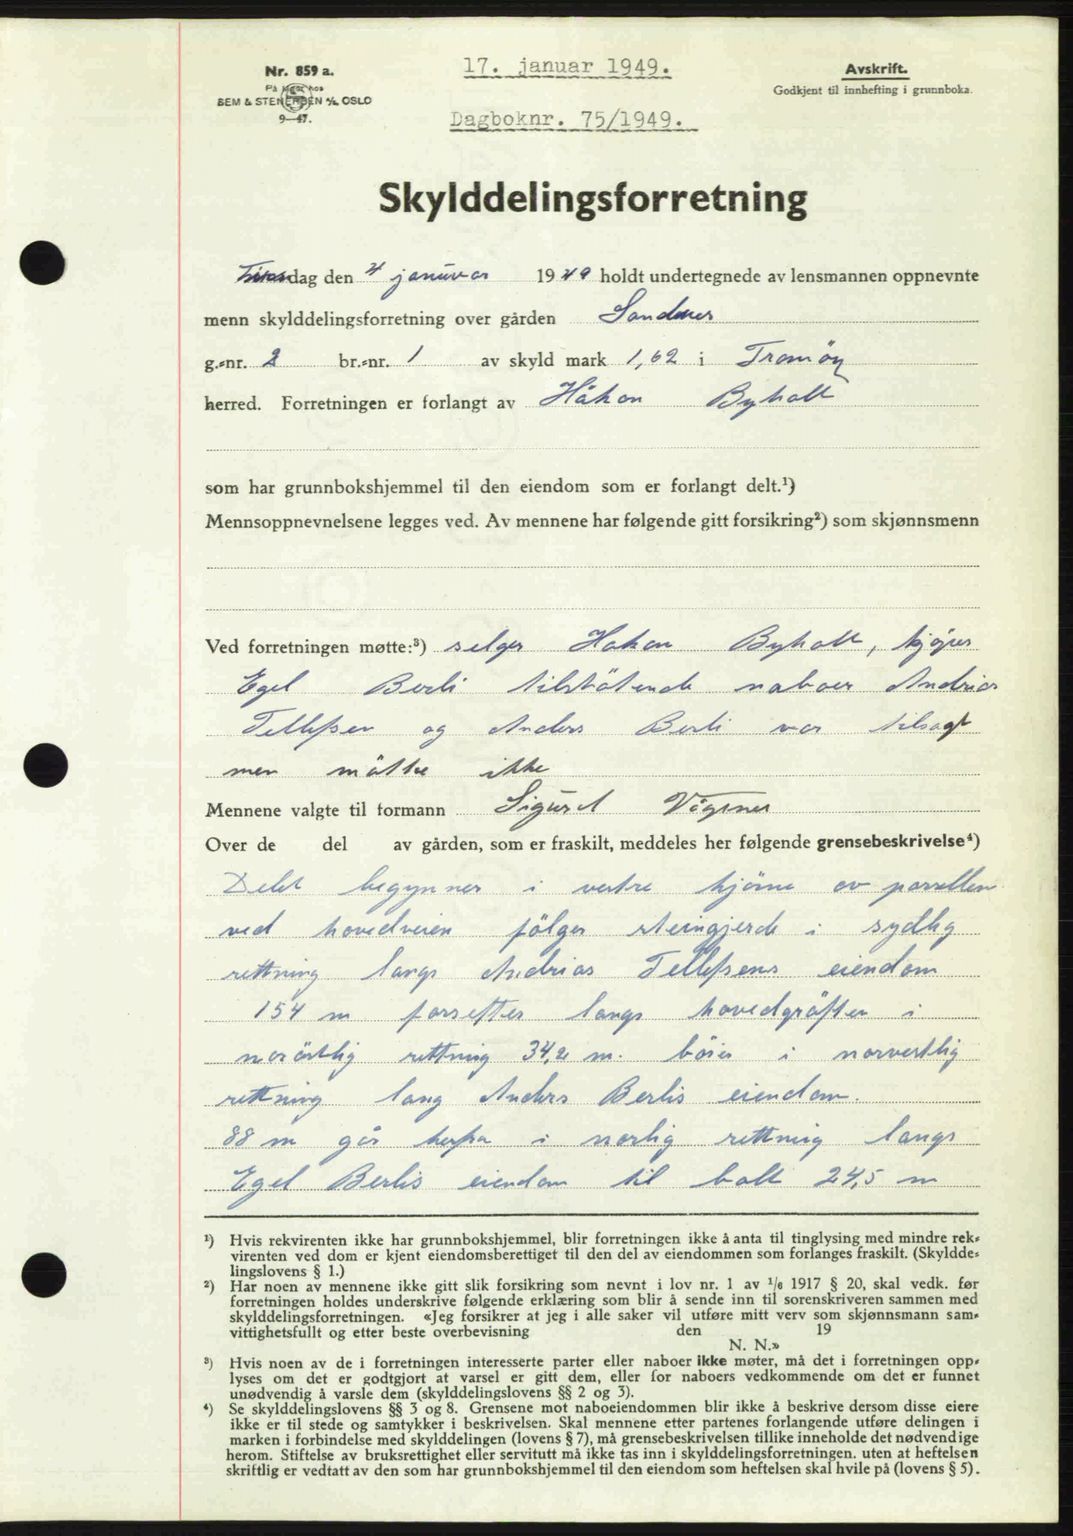 Nr. 859 a.
På lager hos
SEM & STENERSEN A/S OSLO
9—47.
17. januar 1949.
Dagboknr. 75/1949.
Avskrift.
Godkjent til innhefting i grunnboka.
Skylddelingsforretning
dag den 4 januar 1949 holdt undertegnede av lensmannen oppnevnte
menn skylddelingsforretning over gården Sandnes
g.-nr. 2 br.-nr. 1 av skyld mark 1,62 i Tromöy
herred. Forretningen er forlangt av Håkon Byholt
som har grunnbokshjemmel til den eiendom som er forlangt delt.¹)
Mennsoppnevnelsene legges ved. Av mennene har følgende gitt forsikring²) som skjønnsmenn
Ved forretningen møtte:³) selger Hakon Byholt, kjöper
Egel Berli tilstötende naboer Andrias
Tellefsen og Anders Berli var tilsagt
men mötte ikke
Mennene valgte til formann Sigurd Vågsnes
Over de del av gården, som er fraskilt, meddeles her følgende grensebeskrivelse⁴)
Delet begynner i vestre hjörne av parsellen
ved hovedveien fölger steingjerde i sydlig
rettning langs Andrias Tellefsens eiendom
154 m forsefter langs hovedgröften i
noröstlig rettning 34,2 m. böier i norvestlig
rettning lang Anders Berlis eiendom.
88 m går herfra i norlig rettning langs
Egel Berlis eiendom til bolt 24,5 m
¹) Hvis rekvirenten ikke har grunnbokshjemmel, blir forretningen ikke å anta til tinglysing med mindre rek-
virenten ved dom er kjent eiendomsberettiget til den del av eiendommen som forlanges fraskilt. (Skyldde-
lingslovens § 1.)
²) Har noen av mennene ikke gitt slik forsikring som nevnt i lov nr. 1 av 1/6 1917 § 20, skal vedk. før
forretningen holdes underskrive følgende erklæring som blir å sende inn til sorenskriveren sammen med
skylddelingsforretningen. «Jeg forsikrer at jeg i alle saker vil utføre mitt verv som skjønnsmann sam-
vittighetsfullt og etter beste overbevisning den 19
N. N.»
³) Hvis noen av de i forretningen interesserte parter eller naboer ikke møter, må det i forretningen opp-
lyses om det er godtgjort at varsel er gitt dem, eller for naboers vedkommende om det er funnet
unødvendig å varsle dem (skylddelingslovens §§ 2 og 3).
⁴) Se skylddelingslovens §§ 3 og 8. Grensene mot naboeiendommen blir ikke å beskrive dersom disse eiere
ikke er til stede og samtykker i beskrivelsen. Skal mennene etter partenes forlangende utføre delingen i
marken i forbindelse med skylddelingen (lovens § 7), må grensebeskrivelsen tillike inneholde det nødvendige
herom. Stiftelse av bruksrettighet eller servitutt må ikke tas inn i skylddelingsforretningen, uten at heftelsen
skriftlig er vedtatt av den som har grunnbokshjemmel til den eiendom som heftelsen skal hvile på (lovens § 5).